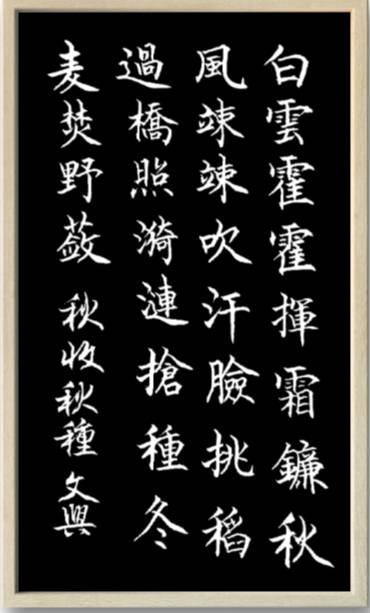 白雲霍霍揮霜鐮秋
風竦竦吹汗臉挑稻
過橋照漪漣搶種冬
麦焚野蔹 秋收秋種 文興